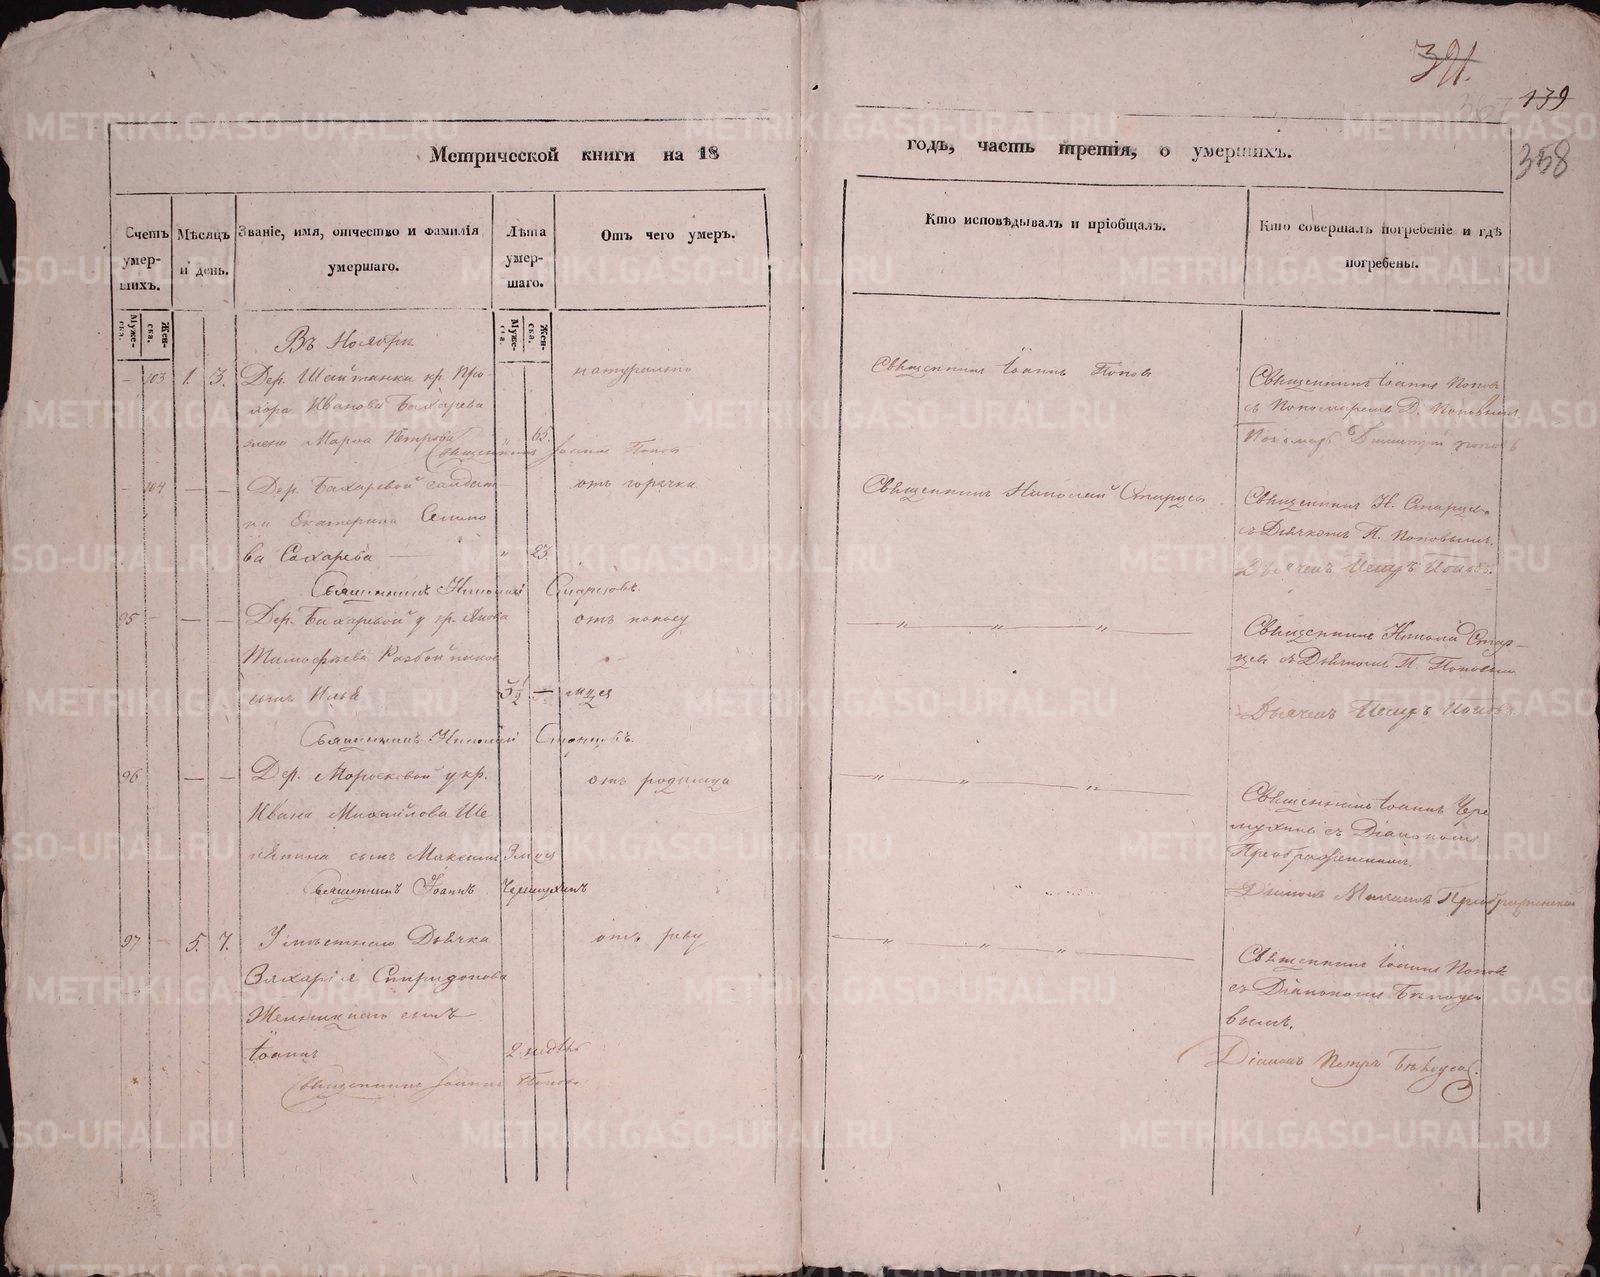 321.
139
358
Метрической книги на 18
годъ, часть третія, о умершихъ.
Счетъ умер-шихъ.
Муже-ска.
Жен-ска.
Мѣсяцъ и день.
Званіе, имя, отчество и фамилія умершаго.
Лѣта умер-шаго.
Муже-ска.
Жен-ска.
Отъ чего умеръ.
Кто исповѣдывалъ и пріобщалъ.
Кто совершалъ погребеніе и гдѣ погребены.
Въ Ноябрѣ
103 1. 3. Дер. Шайтанки кр. Про
хора Иванова Бахарева
жена Марѳа Петрова 65.
натурально
Священникъ Іоаннъ Поповъ
Священникъ Іоаннъ Поповъ
съ Пономаремъ Д. Поповымъ
Пономарь Димитрій Поповъ
Священникъ Іоаннъ Поповъ
104 Дер. Бахаревой солдат
ка Екатерина Семено
ва Сахарева 23.
отъ горячки
Священникъ Николай Старцевъ
Священникъ Н. Старцевъ
съ Дьячкомъ П. Поповымъ.
Дьячекъ Петръ Поповъ.
Священникъ Николай Старцовъ.
95 Дер. Бахаревой у кр. Якова
Тимофѣева
сынъ Илья 3 1/2
мця
отъ поносу
Священникъ Никола Стар-
цевъ съ Дьячкомъ П. Поповым
Дьячекъ Петръ Поповъ
Священникъ Николай Старцовъ.
96 Дер. у кр.
Ивана Михайлова Ше
пѣткина сынъ Максимъ 3 мця
отъ родимца
Священникъ Іоаннъ Чере
мухинъ съ Діакономъ
Преображенскимъ.
Діаконъ Преображенской
Священникъ Іоаннъ Черемухинъ
97 5. 7. У мѣстнаго Дьячка
Захарія Спиридонова
сынъ
Іоаннъ 2. недѣль
отъ реву
Священникъ Іоаннъ Поповъ
съ Діакономъ Бѣлодѣо
вымъ.
Діаконъ Петръ
Священникъ Іоаннъ Поповъ
METRIKI.GASO-URAL.RU